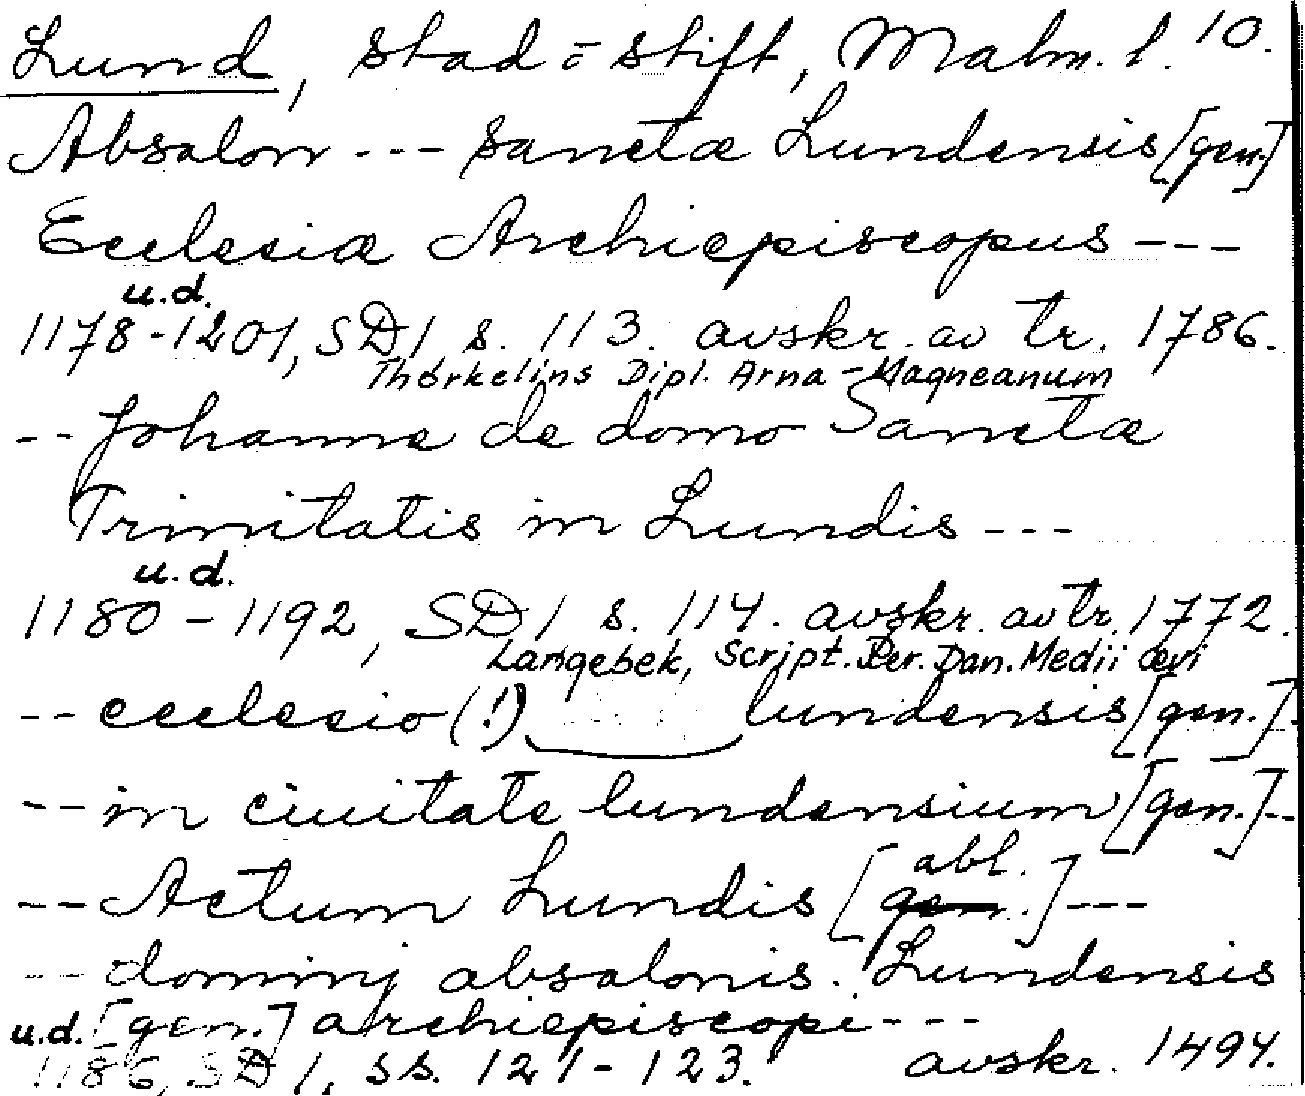 Lund, stad o stift, Malm. l. 10.
Absalon --- sanctæ Lundensis [gen.]
Ecclesiæ Archiepiscopus ---
u.d.
1178-1201, SD 1 s. 113. avskr. av tr. 1786.
Thorkelins Dipl. Arna-Magneanum
-- Johanne de domo Sanctæ
Trinitatis in Lundis ---
u.d.
1180-1192, SD 1 s. 114. avskr. av tr. 1772.
Langebek, Script. Rer. Dan. Medii ævi
-- ecclesio (!) lundensis [gen.] -
-- in ciuitate lundensium [gen.] --
abl.
-- Actum Lundis [gen.] ---
-- dominj absalonis. Lundensis
u.d. [gen.] archiepiscopi ---
1186, SD 1, ss. 121-123. avskr. 1494.